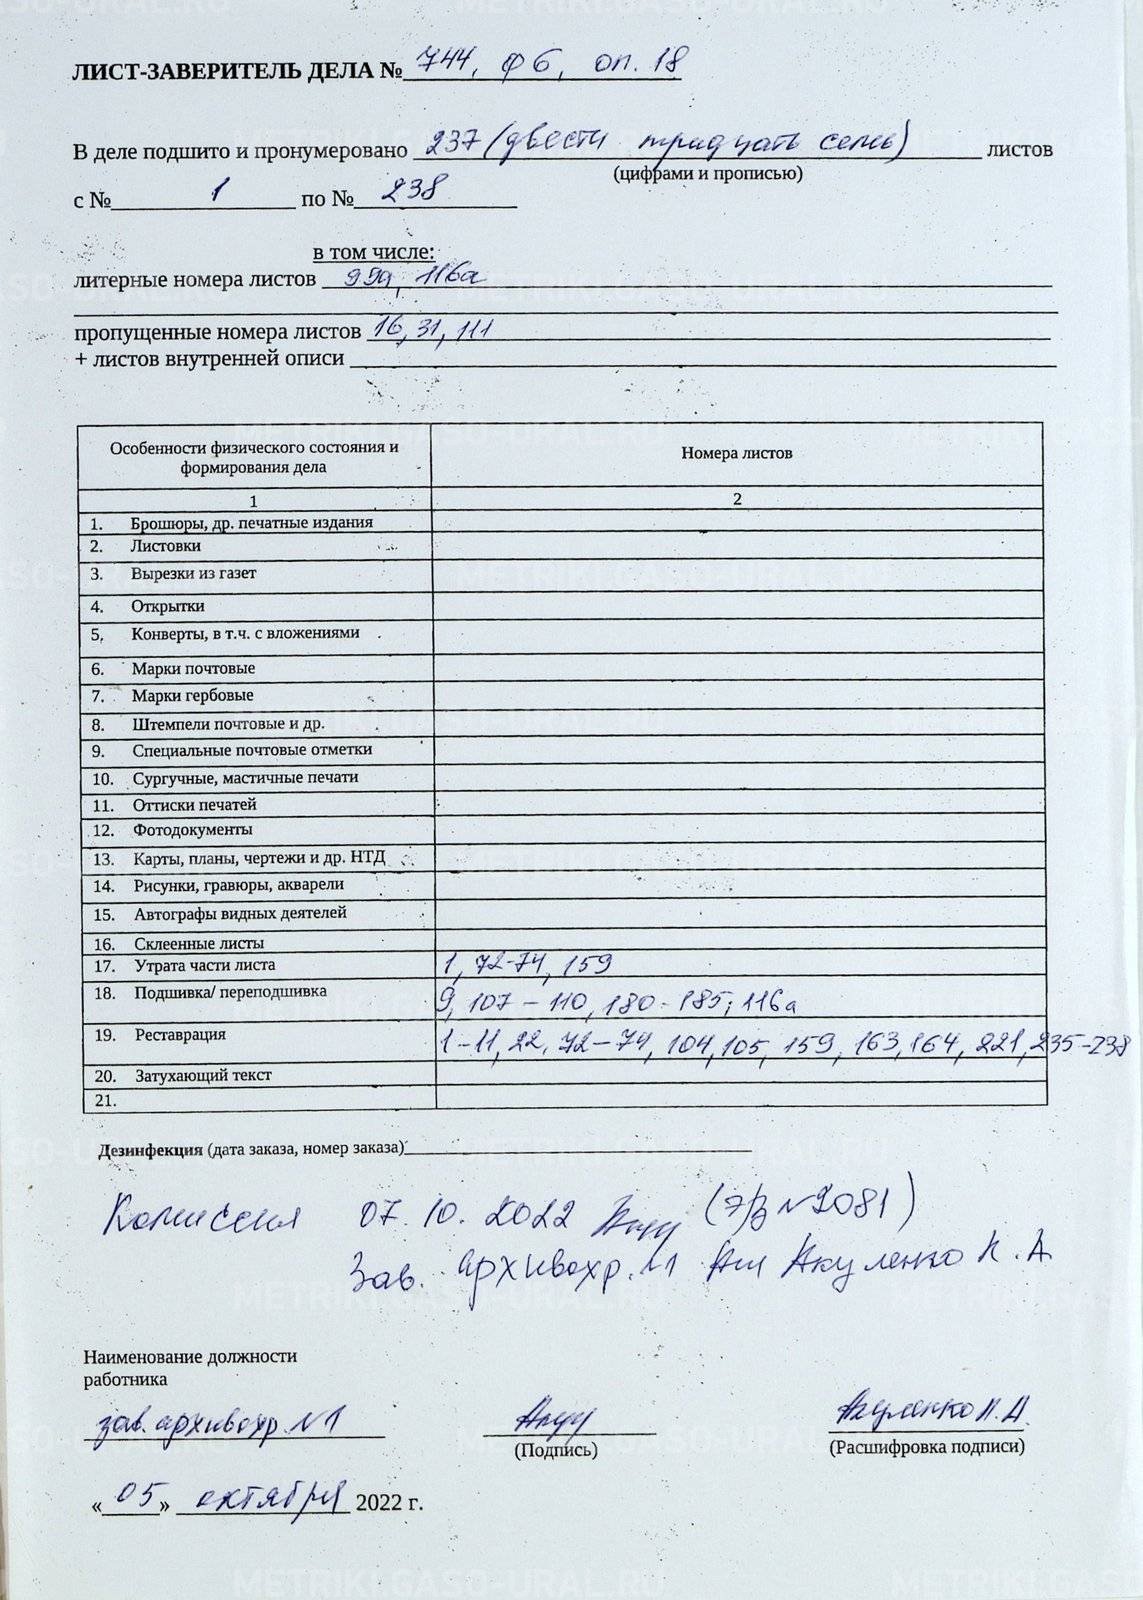 ЛИСТ-ЗАВЕРИТЕЛЬ ДЕЛА № 744, ф 6, оп. 18
В деле подшито и пронумеровано 237 (двести тридцать семь) листов
(цифрами и прописью)
с № 1 по № 238
в том числе:
литерные номера листов 99а, 116а
пропущенные номера листов 16, 31, 111
+ листов внутренней описи
Особенности физического состояния и формирования дела
Номера листов
1 2
1. Брошюры, др. печатные издания
2. Листовки
3. Вырезки из газет
4. Открытки
5. Конверты, в т.ч. с вложениями
6. Марки почтовые
7. Марки гербовые
8. Штемпели почтовые и др.
9. Специальные почтовые отметки
10. Сургучные, мастичные печати
11. Оттиски печатей
12. Фотодокументы
13. Карты, планы, чертежи и др. НТД
14. Рисунки, гравюры, акварели
15. Автографы видных деятелей
16. Склеенные листы
17. Утрата части листа 1, 72-74, 159
18. Подшивка/ переподшивка 9, 107 – 110, 180 - 185; 116а
19. Реставрация 1 – 11, 22, 72 – 74, 104, 105, 159, 163, 164, 221, 235-238
20. Затухающий текст
21.
Дезинфекция (дата заказа, номер заказа)
Комиссия 07. 10. 2022 (Э/З №2081)
Зав. архивохр. №1 Акуленко Н. А.
Наименование должности
работника
зав. архивохр. №1 Акуленко Н. А.
(Подпись) (Расшифровка подписи)
« 05 » октября 2022 г.
METRIKI.GASO-URAL.RU